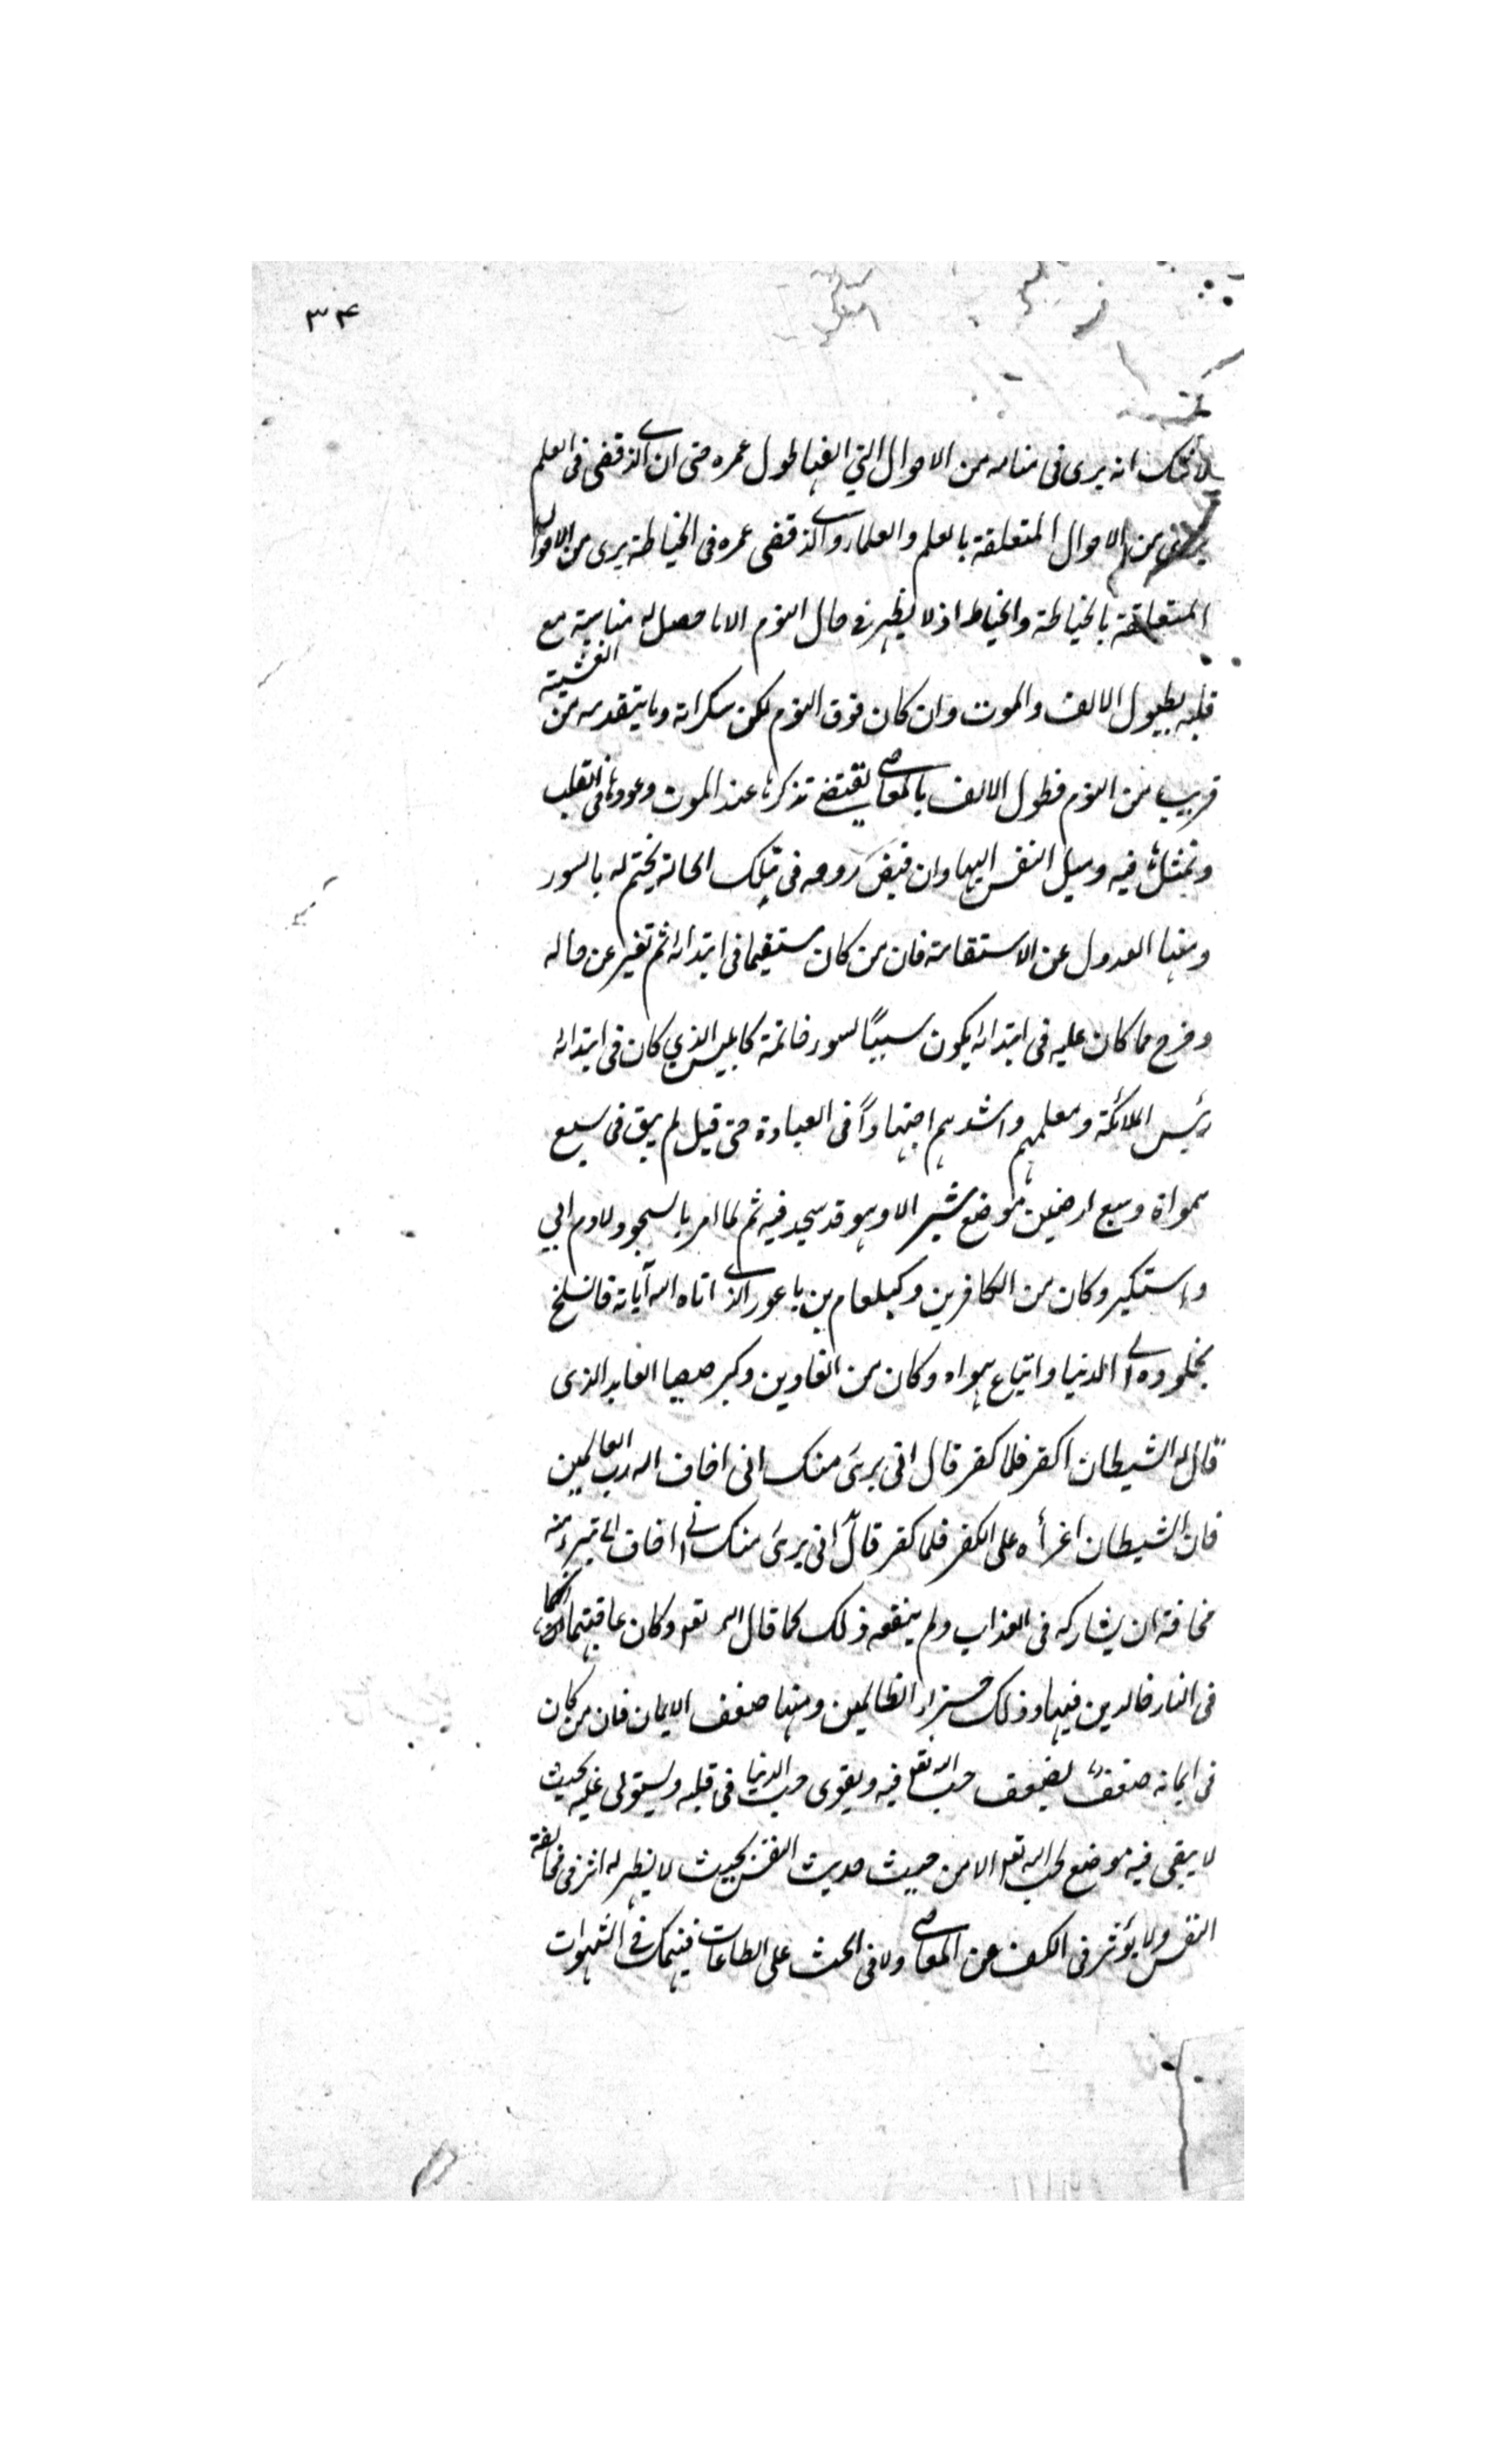 ٣٤
لا شك انه يرى فى منامه من الاحوال التي الفها طول عمره حتى ان الذى قضى فى العلم
يرى من الاحوال المتعلقة بالعلم والعلماء والذى قضى عمره فى الخياطة يرى من الاحوال
المتعلقة بالخياطة والخياط اذ لا يظهر فى حال النوم الا ما حصل له مناسبة مع
قلبه بطول الالف والموت وان كان فوق النوم لكن سكراته وما يتقدمه من الغشية
قريب من النوم فطول الالف بالمعاصى يقتضى تذكرها عند الموت وعودها فى القلب
وتمثلها فيه وميل النفس اليها وان قبض روحه فى تلك الحالة يختم له بالسوء
ومنها العدول عن الاستقامة فان من كان مستقيما فى ابتدائه ثم تغير عن حاله
وخرج مما كان عليه فى ابتدائه يكون سببًا لسوء خاتمة كابليس الذي كان فى ابتدائه
رئيس الملائكة ومعلمهم واشدهم اجتهادًا فى العبادة حتى قيل لم يبق فى سبع
سمواة وسبع ارضين موضع شبر الا وهو قد سجد فيه ثم لما امر بالسجود لادم ابى
واستكبر وكان من الكافرين وكبلعام بن باعور الذى اتاه الله آياته فانسلخ
بخلوده الى الدنيا واتباع هواه وكان من الغاوين وكبرصيصا العابد الذى
قال له الشيطان اكفر فلما كفر قال انى برىء منك انى اخاف الله رب العالمين
فان الشيطان اغرأه على الكفر فلما كفر قال انى برىء منك انى اخاف الله تبرء منه
مخافة ان يشاركه فى العذاب ولم ينفعه ذلك كما قال الله تع وكان عاقبتهما انهما
فى النار خالدين فيها وذلك جزاء الظالمين ومنها ضعف الايمان فان من كان
فى ايمانه ضعف يضعف حب الله تع فيه ويقوى حب الدنيا فى قلبه ويستولى عليه بحيث
لا يبقى فيه موضع لحب الله تع الا من حيث حديث النفس بحيث لا يظهر له اثر فى مخالفة
النفس ولا يؤثر فى الكف عن المعاصى ولا فى الحث على الطاعات فينهمك فى الشهوات